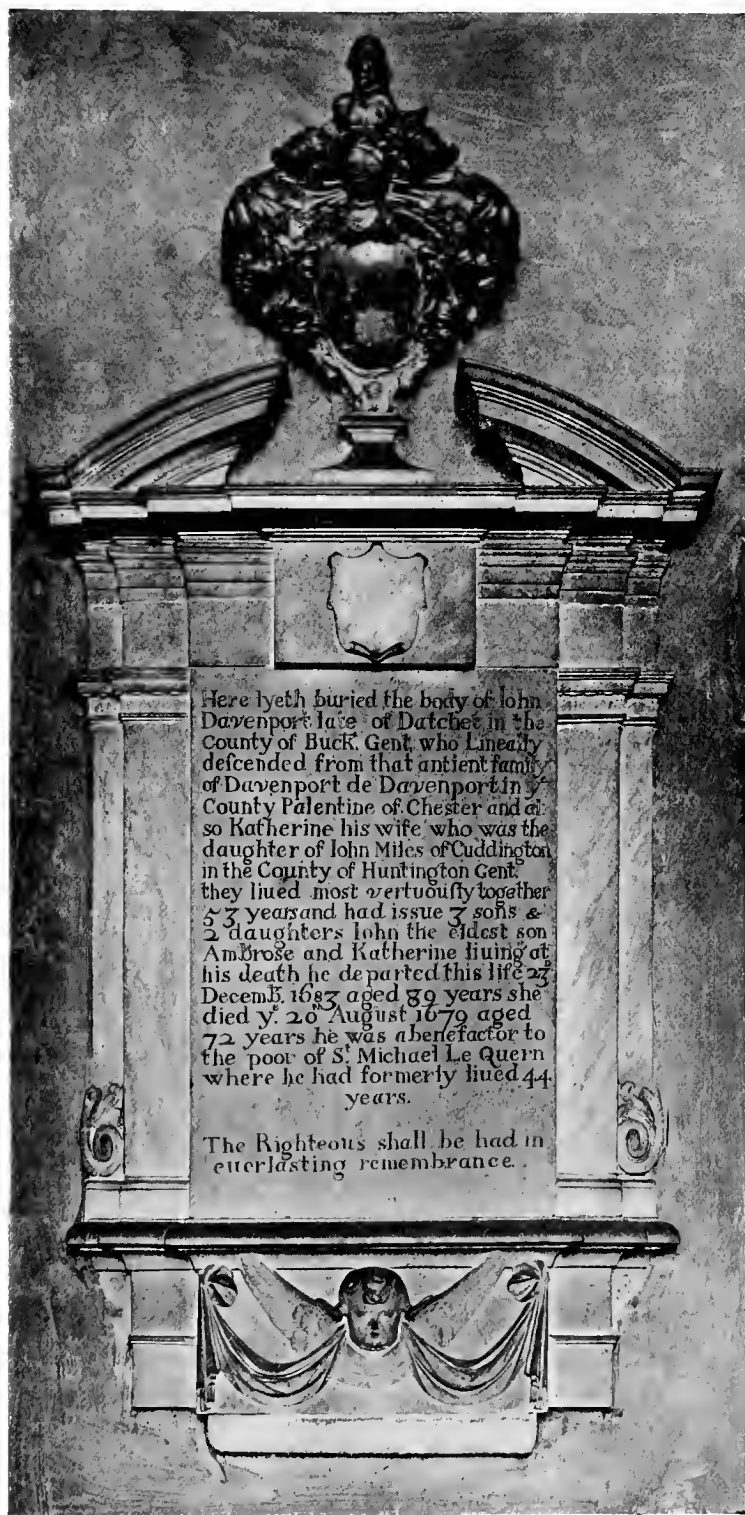 Here lyeth buried the body of Iohn
Davenport late of Datchet in the
County of Buck. Gent. who Lineally
deſcended from that antient family
of Davenport de Davenport in yͤ
County Palentine of Chester and al:
so Katherine his wife who was the
daughter of Iohn Miles of Cuddington
in the County of Huntington Gent.
they liued most vertuouſly together
53 years and had issue 3 sons &
2 daughters Iohn the eldest son
Ambrose and Katherine liuing at
his death he departed this life 23ᵈ
Decemb. 1683 aged 89 years she
died yͤ. 20ᵗʰ August 1679 aged
72 years he was a benefactor to
the poor of Sᵗ. Michael Le Quern
where he had formerly liued 44.
years.
The Righteous shall be had in
euerlasting remembrance.